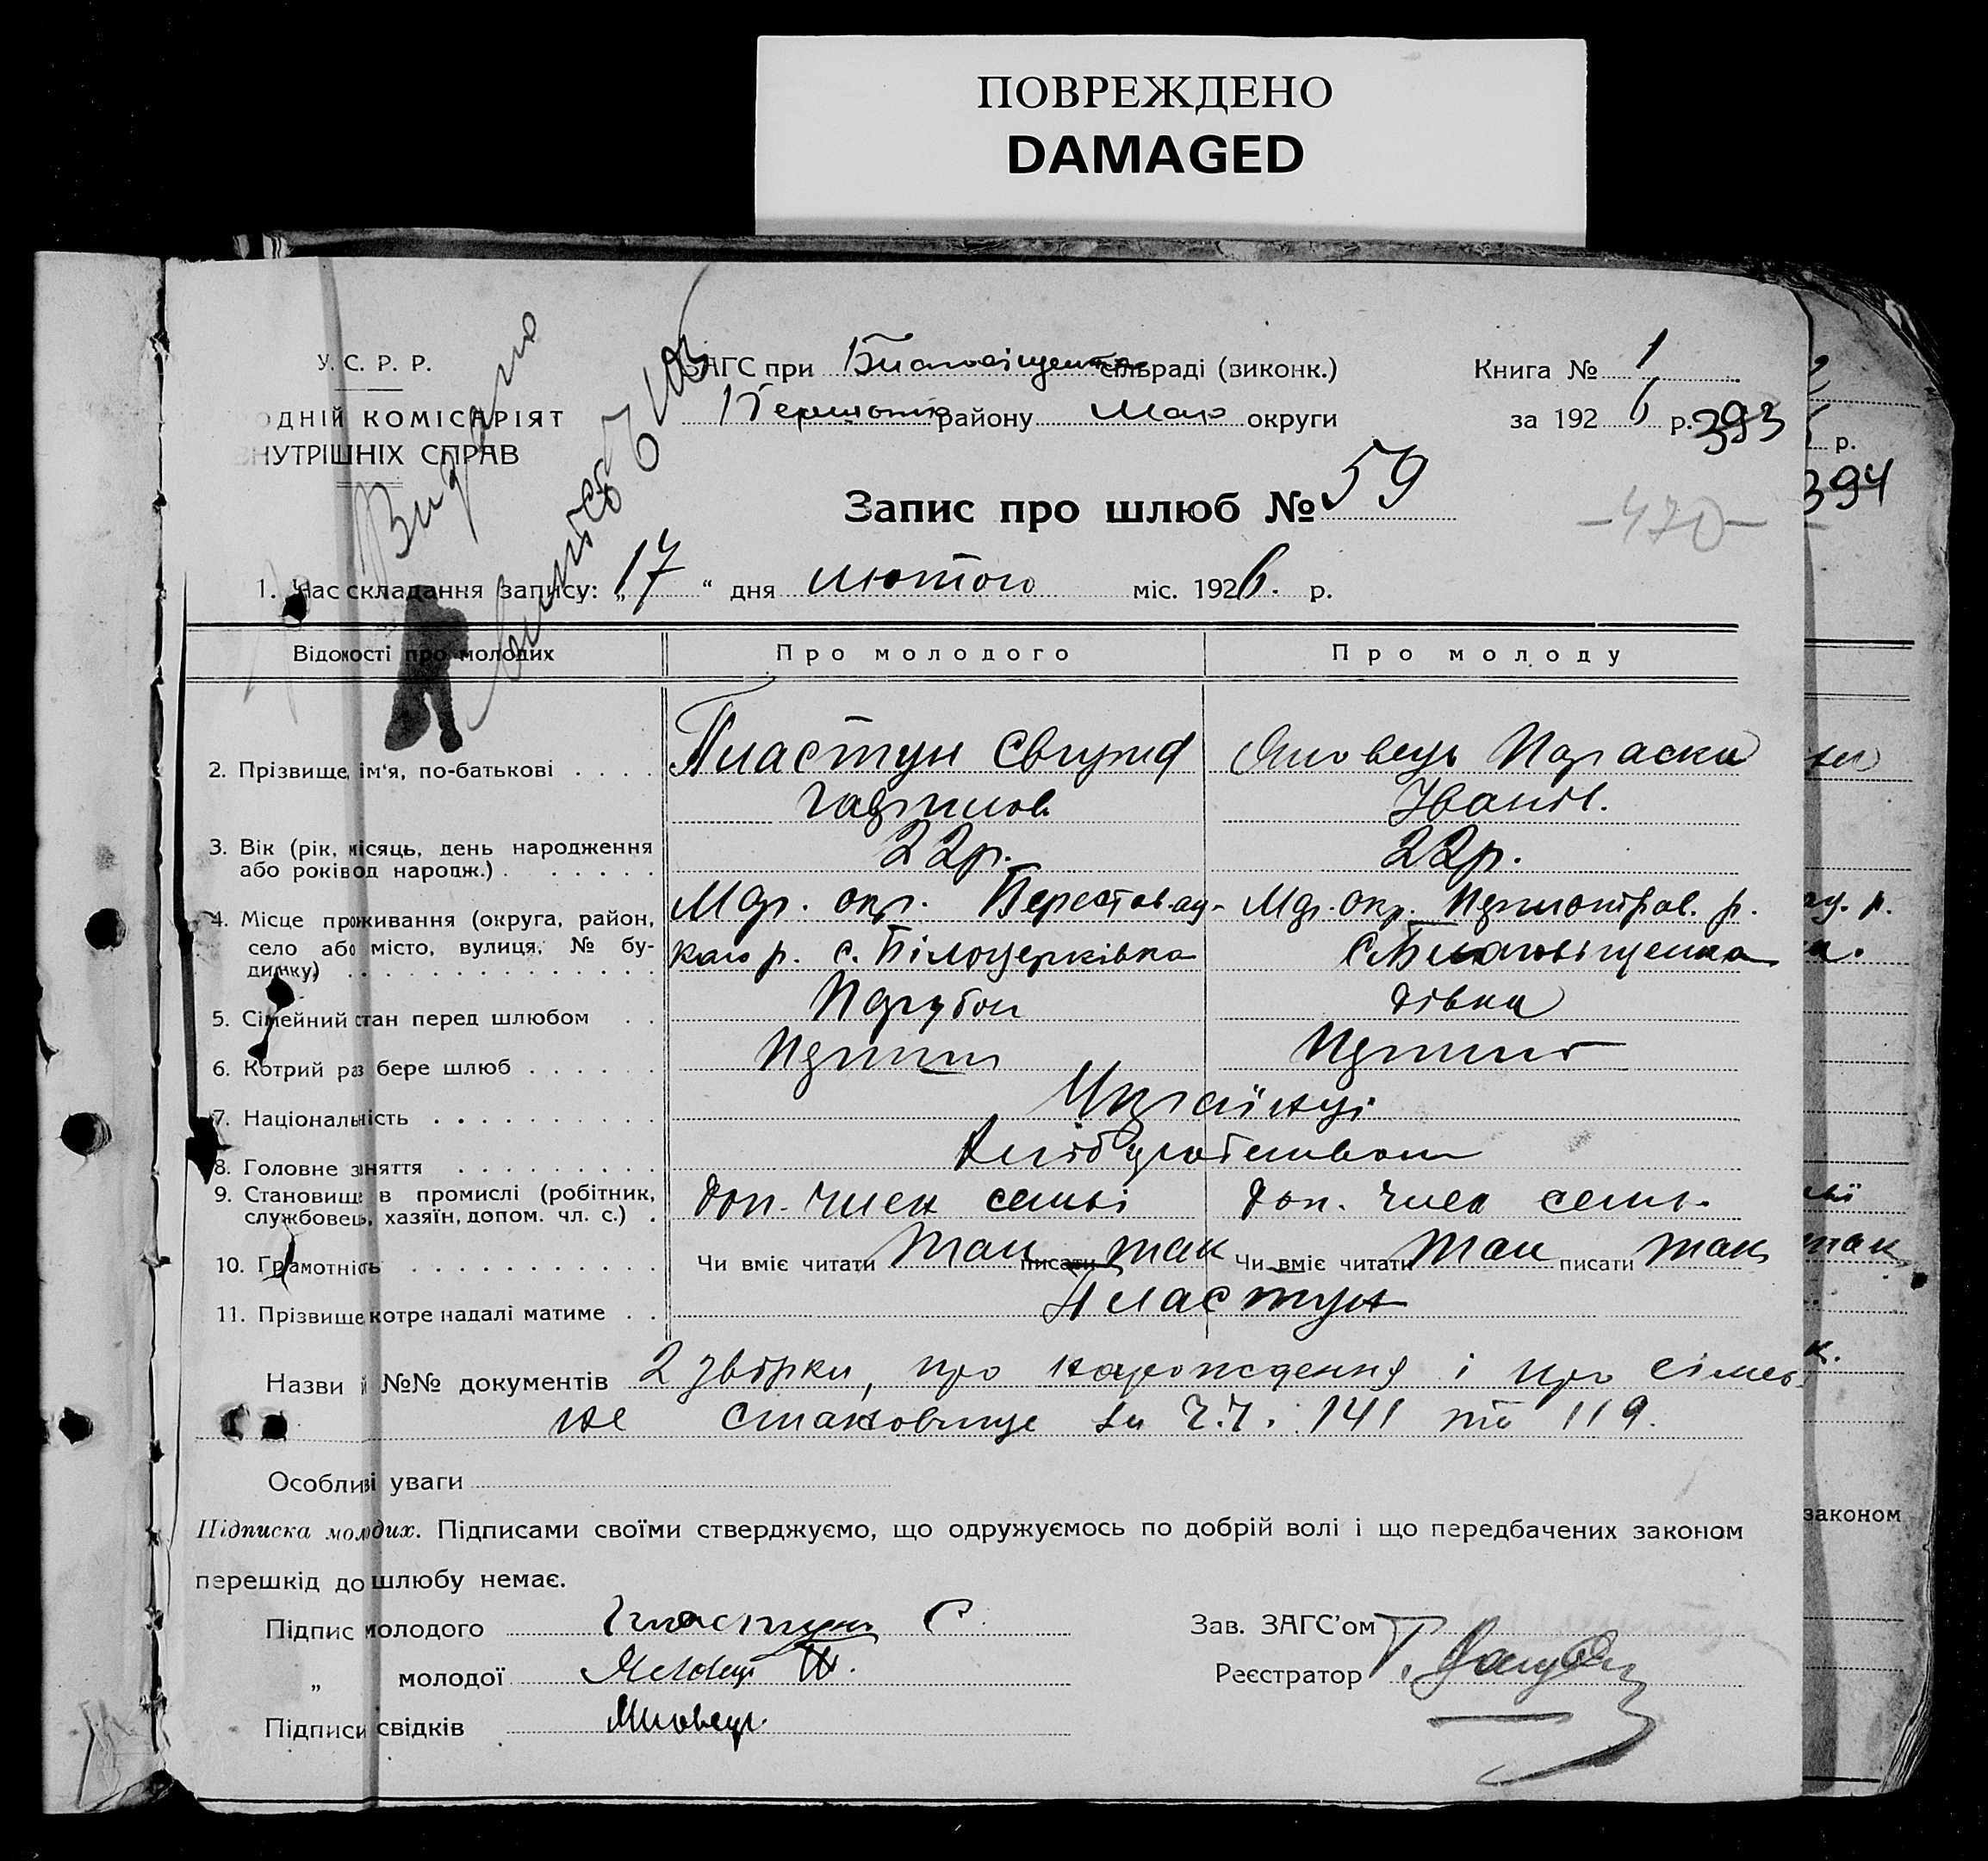 ПОВРЕЖДЕНО
DAMAGED
У. С. Р. Р.
ОДНІЙ КОМІСАРІЯТ
ВНУТРІШНІХ СПРАВ
Видано
ЗАГС при сільраді (виконк.)
району округи
Книга № 1
за 1926 р. 393
Запис про шлюб № 59
-470-
1. Час складання запису: „17“ дня лютого міс. 1926. р.
Відомості про молодих
Про молодого
Про молоду
2. Прізвище, ім'я, по-батькові
Пластун Свирид
Гаврилов.
Яловець Параска
Іванів.
3. Вік (рік, місяць, день народження
або років од народж.)
22р.
22р.
4. Місце проживання (округа, район,
село або місто, вулиця, № бу-
динку)
Мар. окр. Берестовац-
кого р. с. Білоцерківка
Мар. окр. р.
с. Благовіщенка
5. Сімейний стан перед шлюбом
Парубок
дівка
6. Котрий раз бере шлюб
Перший
Перший
7. Національність
Українці
8. Головне заняття
Хліборобством
9. Становище в промислі (робітник,
службовець, хазяїн, допом. чл. с.)
доп. член семьї
доп. член семь.
10. Грамотність
Чи вміє читати так писати так
Чи вміє читати так писати так
11. Прізвище котре надалі матиме
Пластун
Назви й №№ документів 2 , про народження і про сімей-
не становище за Ч.Ч. 141 та 119.
Особливі уваги
Підписка молодих. Підписами своїми стверджуємо, що одружуємось по добрій волі і що передбачених законом
перешкід до шлюбу немає.
Підпис молодого Пластун С.
„ молодої Яловець П.
Підписи свідків Яловець
Зав. ЗАГС'ом
Реєстратор
р.
394
законом